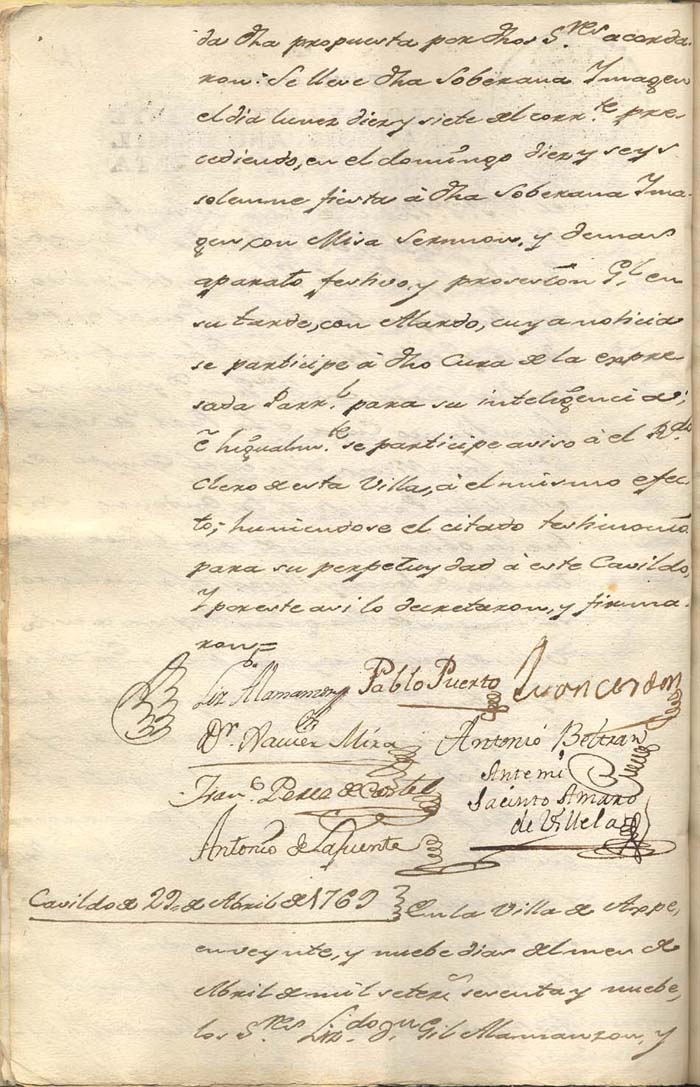 da dha propuesta por dhos S.res acorda
ron: Se lleve dha Soberana Imagen
el dia lunes diez y siete del corr.te pre
cediendo, en el domingo diez y seys
solemne fiesta à dha Soberana Ima
gen con Misa Sermon, y demas
aparato festivo, y prosesion G.l en
su tarde, con Alardo, cuya noticia
se participe à dho Cura de la expre
sada Parr.l para su inteligencia;
è higualm.te se participe aviso à el R.do
Clero de esta Villa, à el mismo efec
to; huniendose el citado testimonio
para su perpetuydad à este Cavildo,
Y por este asi lo decretaron, y firma
ron=
Liz. Almamzon Pablo Puerto Juan Cerdan
Dr. Navier Mira Antonio Beltran
Antemi
Fran.co Perez de Costel
Jacinto Amaro
de Villela
Antonio de Lafuente
Cavildo de 29 de Abril de 1769 En la Villa de Aspe,
en veynte, y nuebe dias del mes de
Abril de mil setec.s sesenta y nuebe,
los S.res Liz.do dn Gil Almamzon, y